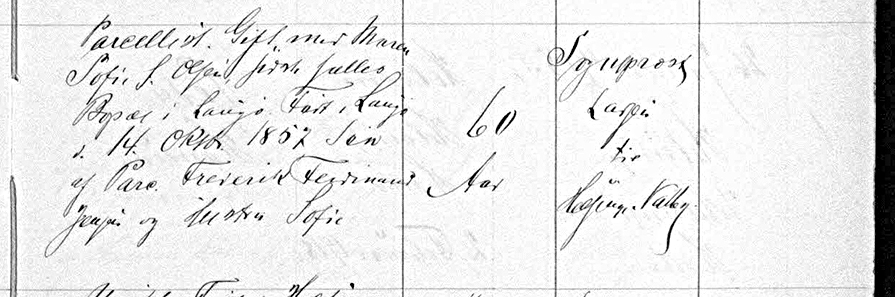 Parcellist. Gift med Maren
Sofie S. Olsen, sidste fælles
Bopæl i Langø. Født i Langø
d. 14. Oktbr. 1857 Søn
af Parc. Frederik Ferdinand
Jensen og Hustru Sofie
60
Aar
Sognepræst
Larsen
Helsinge.